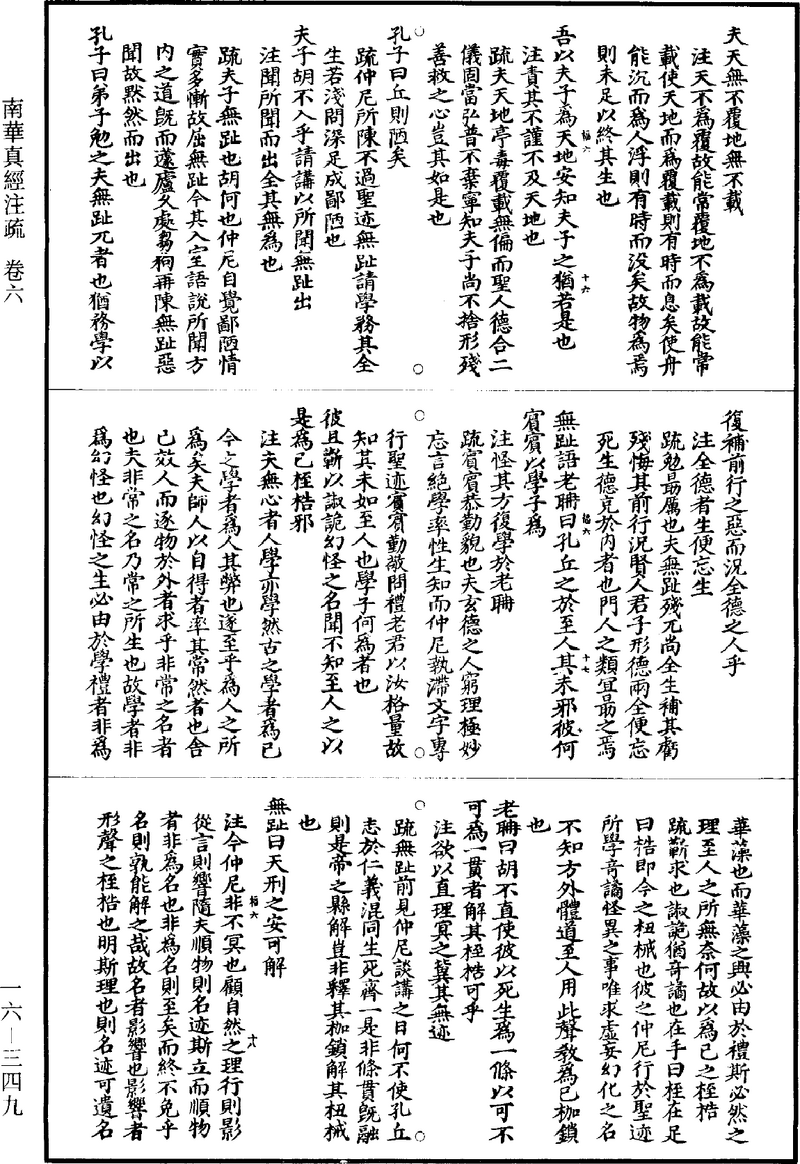 夫天無不覆地無不載
注天不為覆故能常覆地不為載故能常
載使天地而為覆載則有時而息矣使舟
能沉而為人浮則有時而沒矣故物為焉
則未足以終其生也
吾以夫子為天地安知夫子之猶若是也
注責其不謹不及天地也
疏夫天地亭毒覆載無偏而聖人德合二
儀固當弘普不棄寧知夫子尚不捨形殘
善救之心豈其如是也
孔子曰丘則陋矣
疏仲尼所陳不過聖迹無趾請學務其全
生若淺問深足成鄙陋也
夫子胡不入乎請講以所聞無趾出
注聞所聞而出全其無為也
疏夫子無趾也胡何也仲尼自覺鄙陋情
實多慚故屈無趾令其入室語說所聞方
內之道既而蘧廬久處芻狗再陳無趾惡
聞故默然而出也
孔子曰弟子勉之夫無趾兀者也猶務學以
復補前行之惡而況全德之人乎
注全德者生便忘生
疏勉勗厲也夫無趾殘兀尚全生補其虧
殘悔其前行況賢人君子形德兩全便忘
死生德充於內者也門人之類宜勗之焉
無趾語老聃曰孔丘之於至人其未邪彼何
賓賓以學子為
注怪其方復學於老聃
疏賓賓恭勤貌也夫玄德之人窮理極妙
忘言絕學率性生知而仲尼執滯文字專
行聖迹賓賓勤敬問禮老君以汝格量故
知其未如至人也學子何為者也
彼且蘄以諔詭幻怪之名聞不知至人之以
是為己桎梏邪
注夫無心者人學亦學然古之學者為己
今之學者為人其弊也遂至乎為人之所
為矣夫師人以自得者率其常然者也舍
己效人而逐物於外者求乎非常之名者
也夫非常之名乃常之所生也故學者非
為幻怪也幻怪之生必由於學禮者非為
華藻也而華藻之興必由於禮斯必然之
理至人之所無奈何故以為己之桎梏
疏蘄求也諔詭猶奇譎也在手曰桎在足
曰梏即今之杻械也彼之仲尼行於聖迹
所學奇譎怪異之事唯求虛妄幻化之名
不知方外體道至人用此聲教為己枷鎖
也
老聃曰胡不直使彼以死生為一條以可不
可為一貫者解其桎梏可乎
注欲以直理冥之冀其無迹
疏無趾前見仲尼談講之日何不使孔丘
忘於仁義混同生死齊一是非條貫既融
則是帝之縣解豈非釋其枷鎖解其杻械
也
無趾曰天刑之安可解
注今仲尼非不冥也顧自然之理行則影
從言則響隨夫順物則名迹斯立而順物
者非為名也非為名則至矣而終不免乎
名則孰能解之哉故名者影響也影響者
形聲之桎梏也明斯理也則名迹可遺名
南華真經注疏　卷六
一六—三四九